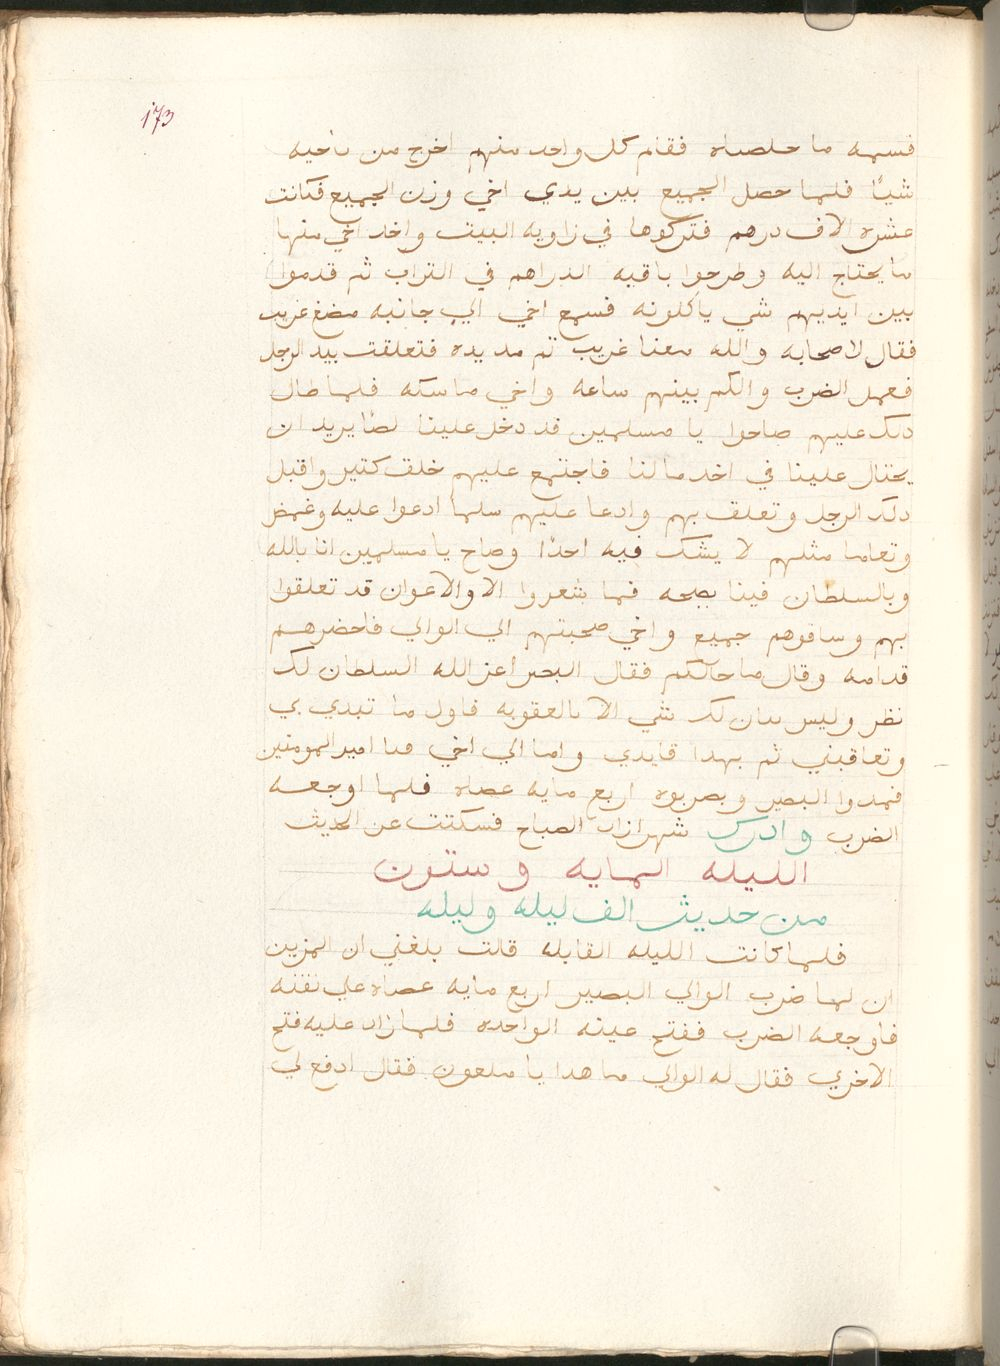 173
قسمه ما حلصناه فقام كل واحد منهم اخرج من ناحيه
شيًا فلما حصل الجميع بين يدي اخي وزن الجميع فكانت
عشره الاف درهم فتركوها في زاويه البيت واخد اخي منها
ما يحتاج اليه وطرحوا باقيه الدراهم في التراب ثم قدموا
بين ايديهم شي ياكلونه فسمع اخي الي جانبه مضغ غريب
فقال لاصحابه والله معنا غريب ثم مد يده فتعلقت بيد الرجل
فعمل الضرب والكم بينهم ساعه واخي ماسكه فلما طال
دلك عليهم صاحوا يا مسلمين قد دخل علينا لصًا يريد ان
يحتال علينا في اخد مالنا فاجتمع عليهم خلق كتير واقبل
دلك الرجل وتعلق بهم وادعا عليهم سلما ادعوا عليه وغمض
وتعاما مثلهم لا يشك فيه احدًا وصاح يا مسلمين انا بالله
وبالسلطان فينا بصحه فما شعروا الا والاعوان قد تعلقوا
بهم وساقوهم جميع واخي صحبتهم الي الوالي فاحضرهم
قدامه وقال ما حالكم فقال البصير أعز الله السلطان لك
نظر وليس بيان لك شي الا بالعقوبه فاول ما تبدي بي
وتعاقبني ثم بهدا قايدي واما الي اخي اميرالمومنين
فمدوا البصير وبضربوه اربع مايه عصاه فلما اوجعه
الضرب وادرك شهرازاد الصباح فسكتت عن الحديث
الليله المايه وستون
من حديث الف ليله وليله
فلما كانت الليله القابله قالت بلغني ان المزين
ان لما ضرب الوالي البصير اربع مايه عصاه علي
فاوجعه الضرب ففتح عينه الواحده فلما زاد عليه فتح
الاخري فقال له الوالي ما هدا يا ملعون فقال ادفع لي